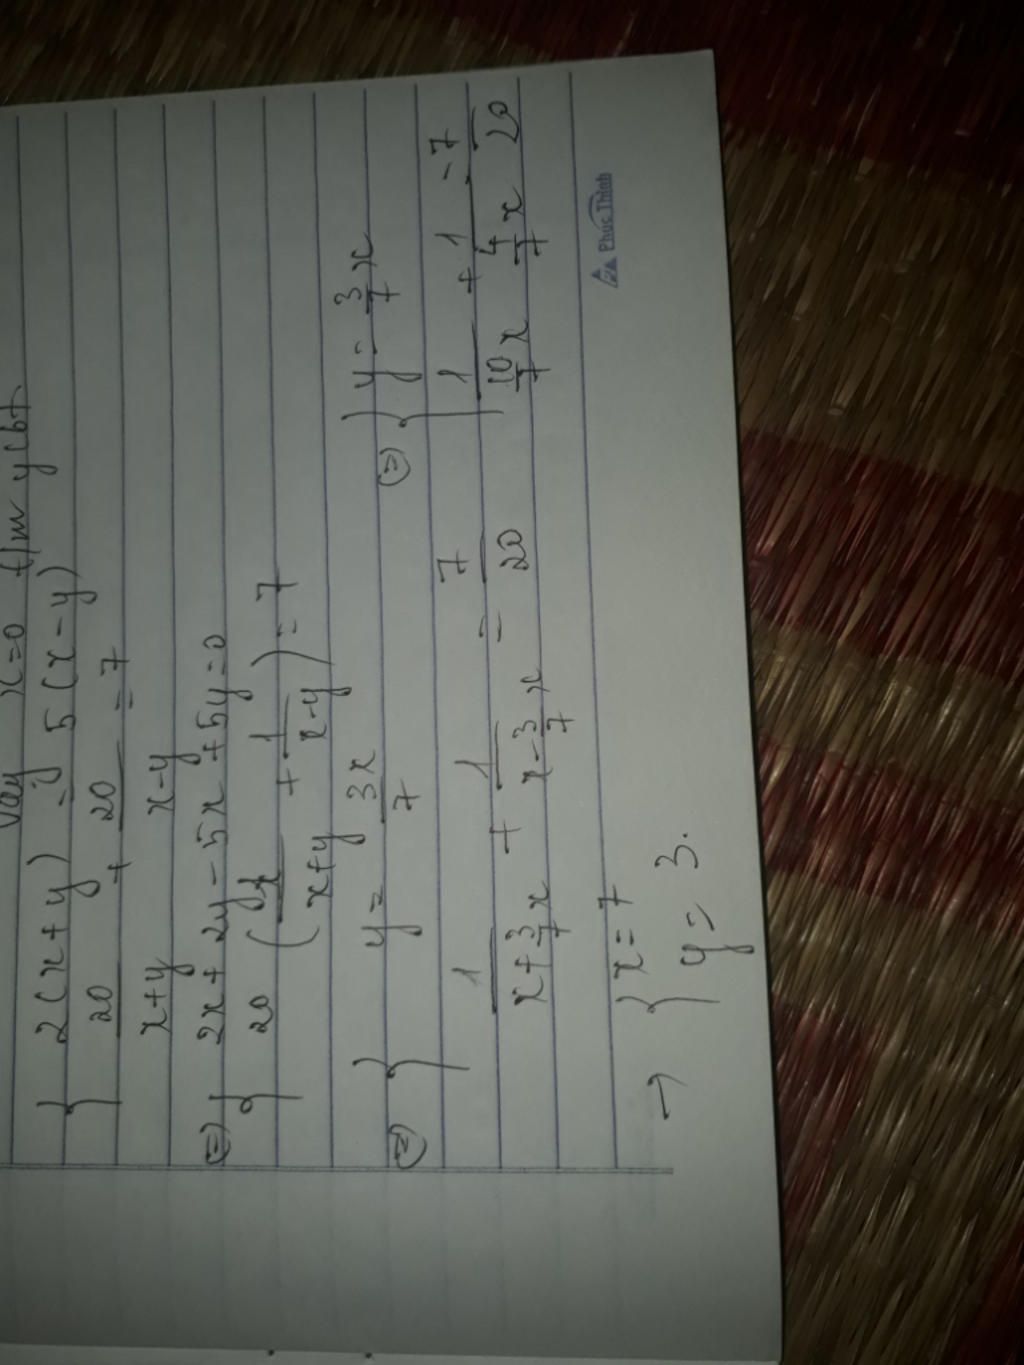 Vậy x=0 t/m ycbt
{ 2(x+y) = 5(x-y)
20/(x+y) + 20/(x-y) = 7
(=) { 2x+2y-5x+5y=0
20 (1/(x+y) + 1/(x-y)) = 7
(=) { y = 3x/7
1/(x+3/7x) + 1/(x-3/7x) = 7/20
(=) { y = 3/7x
1/(10/7x) + 1/(4/7x) = 7/20
→ { x=7
y= 3.
Phuc Thinh